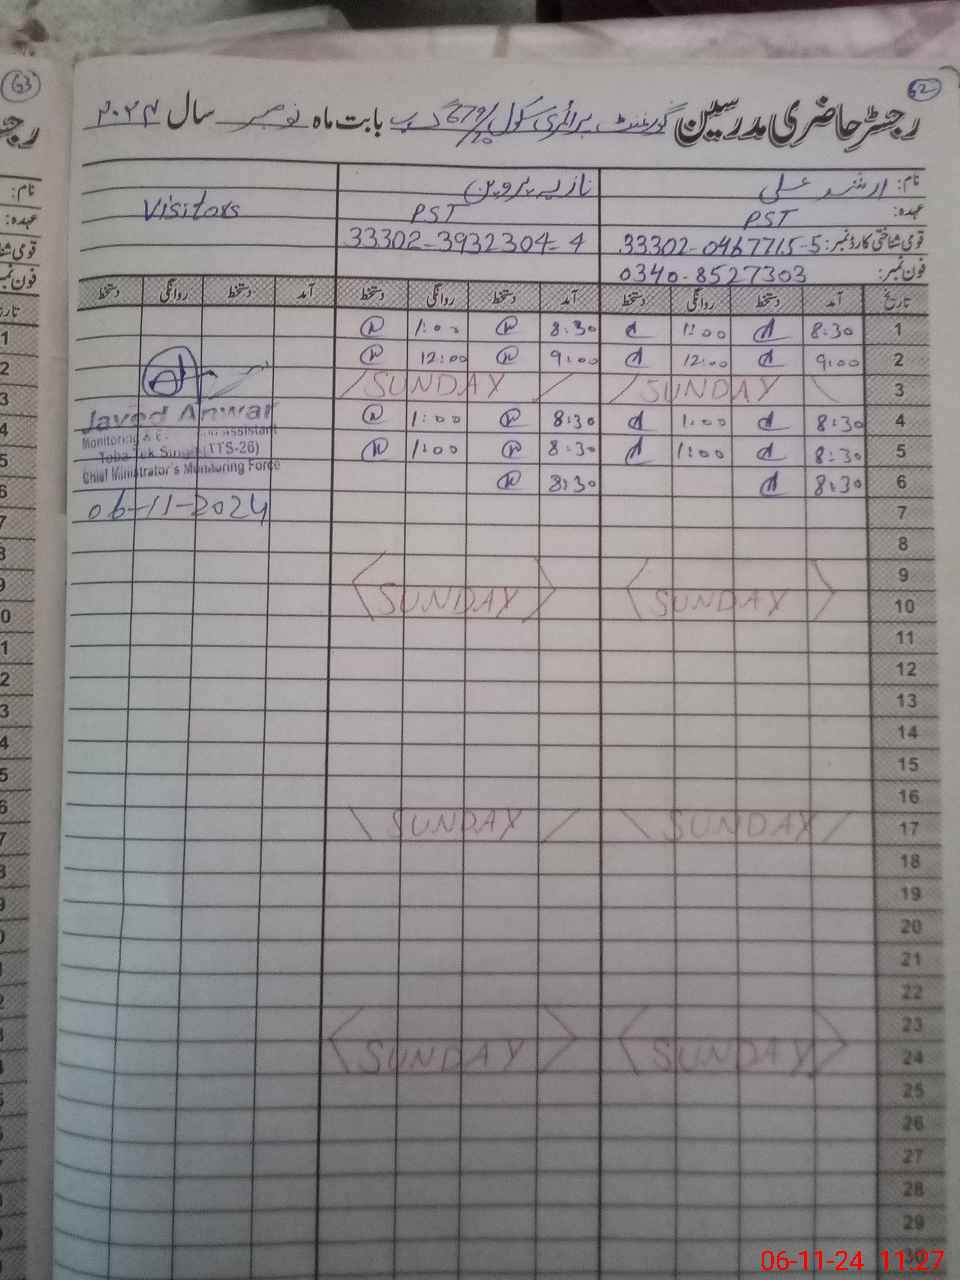 63
62
رجسٹر حاضری مدرسین گورنمنٹ پرائمری سکول 679/20 گ ب بابت ماہ نومبر سال ۲۰۲۴
نام: ارشد علی نازیہ پروین
عہدہ: PST PST Visitors
قومی شناختی کارڈ نمبر: 33302-0467715-5 33302-3932304-4
فون نمبر: 0340-8527303
تاریخ آمد دستخط روانگی دستخط آمد دستخط روانگی دستخط آمد دستخط روانگی دستخط
1 8:30 1:00 8:30 1:00
2 9:00 12:00 9:00 12:00
3 SUNDAY SUNDAY
4 8:30 1:00 8:30 1:00
5 8:30 1:00 8:30 1:00
6 8:30 8:30
Javed Anwar
Monitoring & Assistant
Toba Tek Singh (TTS-26)
Chief Ministrator's Monitoring Force
06-11-2024
7
8
9
10 SUNDAY SUNDAY
11
12
13
14
15
16
17 SUNDAY SUNDAY
18
19
20
21
22
23
24 SUNDAY SUNDAY
25
26
27
28
29
30
06-11-24 11:27